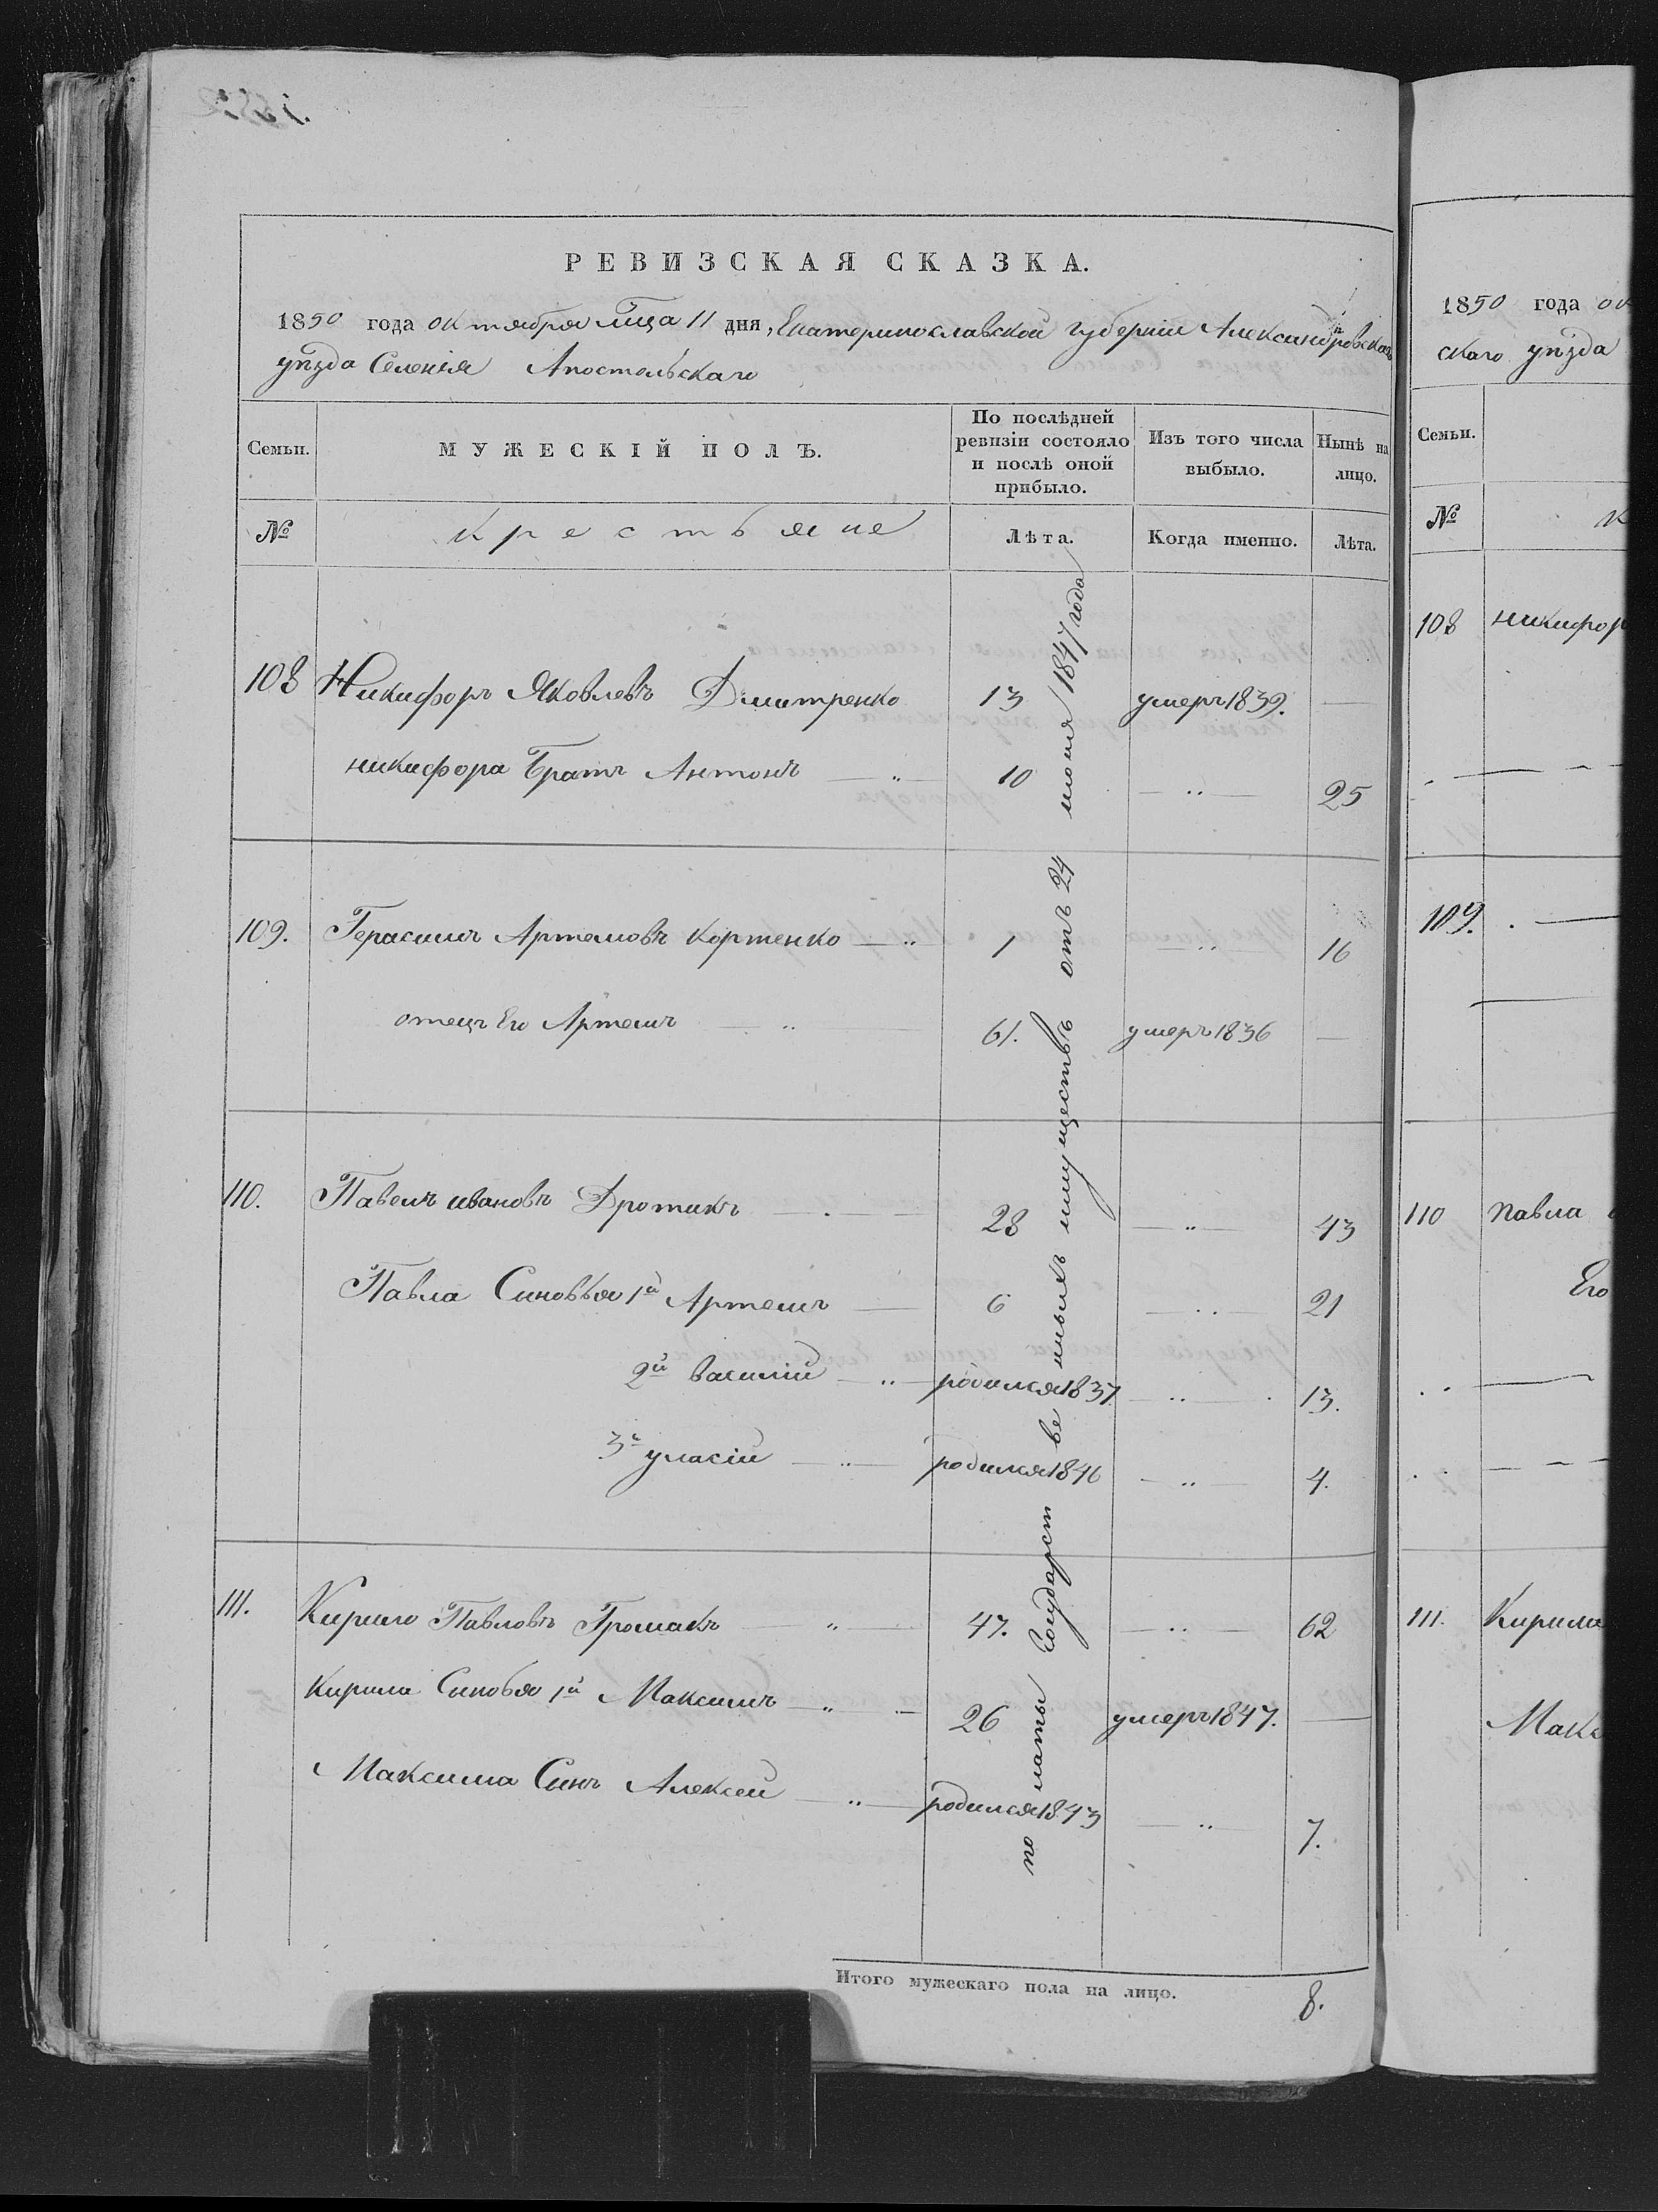 РЕВИЗСКАЯ СКАЗКА.
1850 года октября мца 11 дня, Екатеринославской губерніи Александровскаго
уѣзда Селенія Апостольскаго
Семьи.
МУЖЕСКІЙ ПОЛЪ.
По послѣдней
ревизіи состояло
и послѣ оной
прибыло.
Изъ того числа
выбыло.
Нынѣ на
лицо.
№
крестьяне
Лѣта.
Когда именно.
Лѣта.
108 Никифоръ Яковлевъ Дмитренко 13 умеръ 1839. —
никифора Братъ Антонъ — „ 10 — „ — 25
109. Герасимъ Артемовъ Кортенко — „ 1 — „ — 16
отецъ Его Артемъ — „ 61. умеръ 1836 —
110. Павелъ ивановъ Дротикъ — . — 28 — „ — 43
Павла Синовья 1й Артемъ — 6 — „ — 21
2й василій — „ — родился 1837. — „ — 13.
3й уласій — „ — родился 1846 — „ — 4.
111. Кирило Павловъ Громакъ — „ — 47. — „ — 62
Кирила Синовья 1й Максимъ — „ — 26 умеръ 1847. —
Максима Синъ Алексей — „ — родился 1843 — „ — 7.
по Государст ве ныхъ имуществъ отъ 24 1847 года
Итого мужескаго пола на лицо. 8.
1850 года ок
скаго уѣзда
Семьи.
№ к
108 никифор
109. . —
110 павла
Его
111. Кирила
Макс